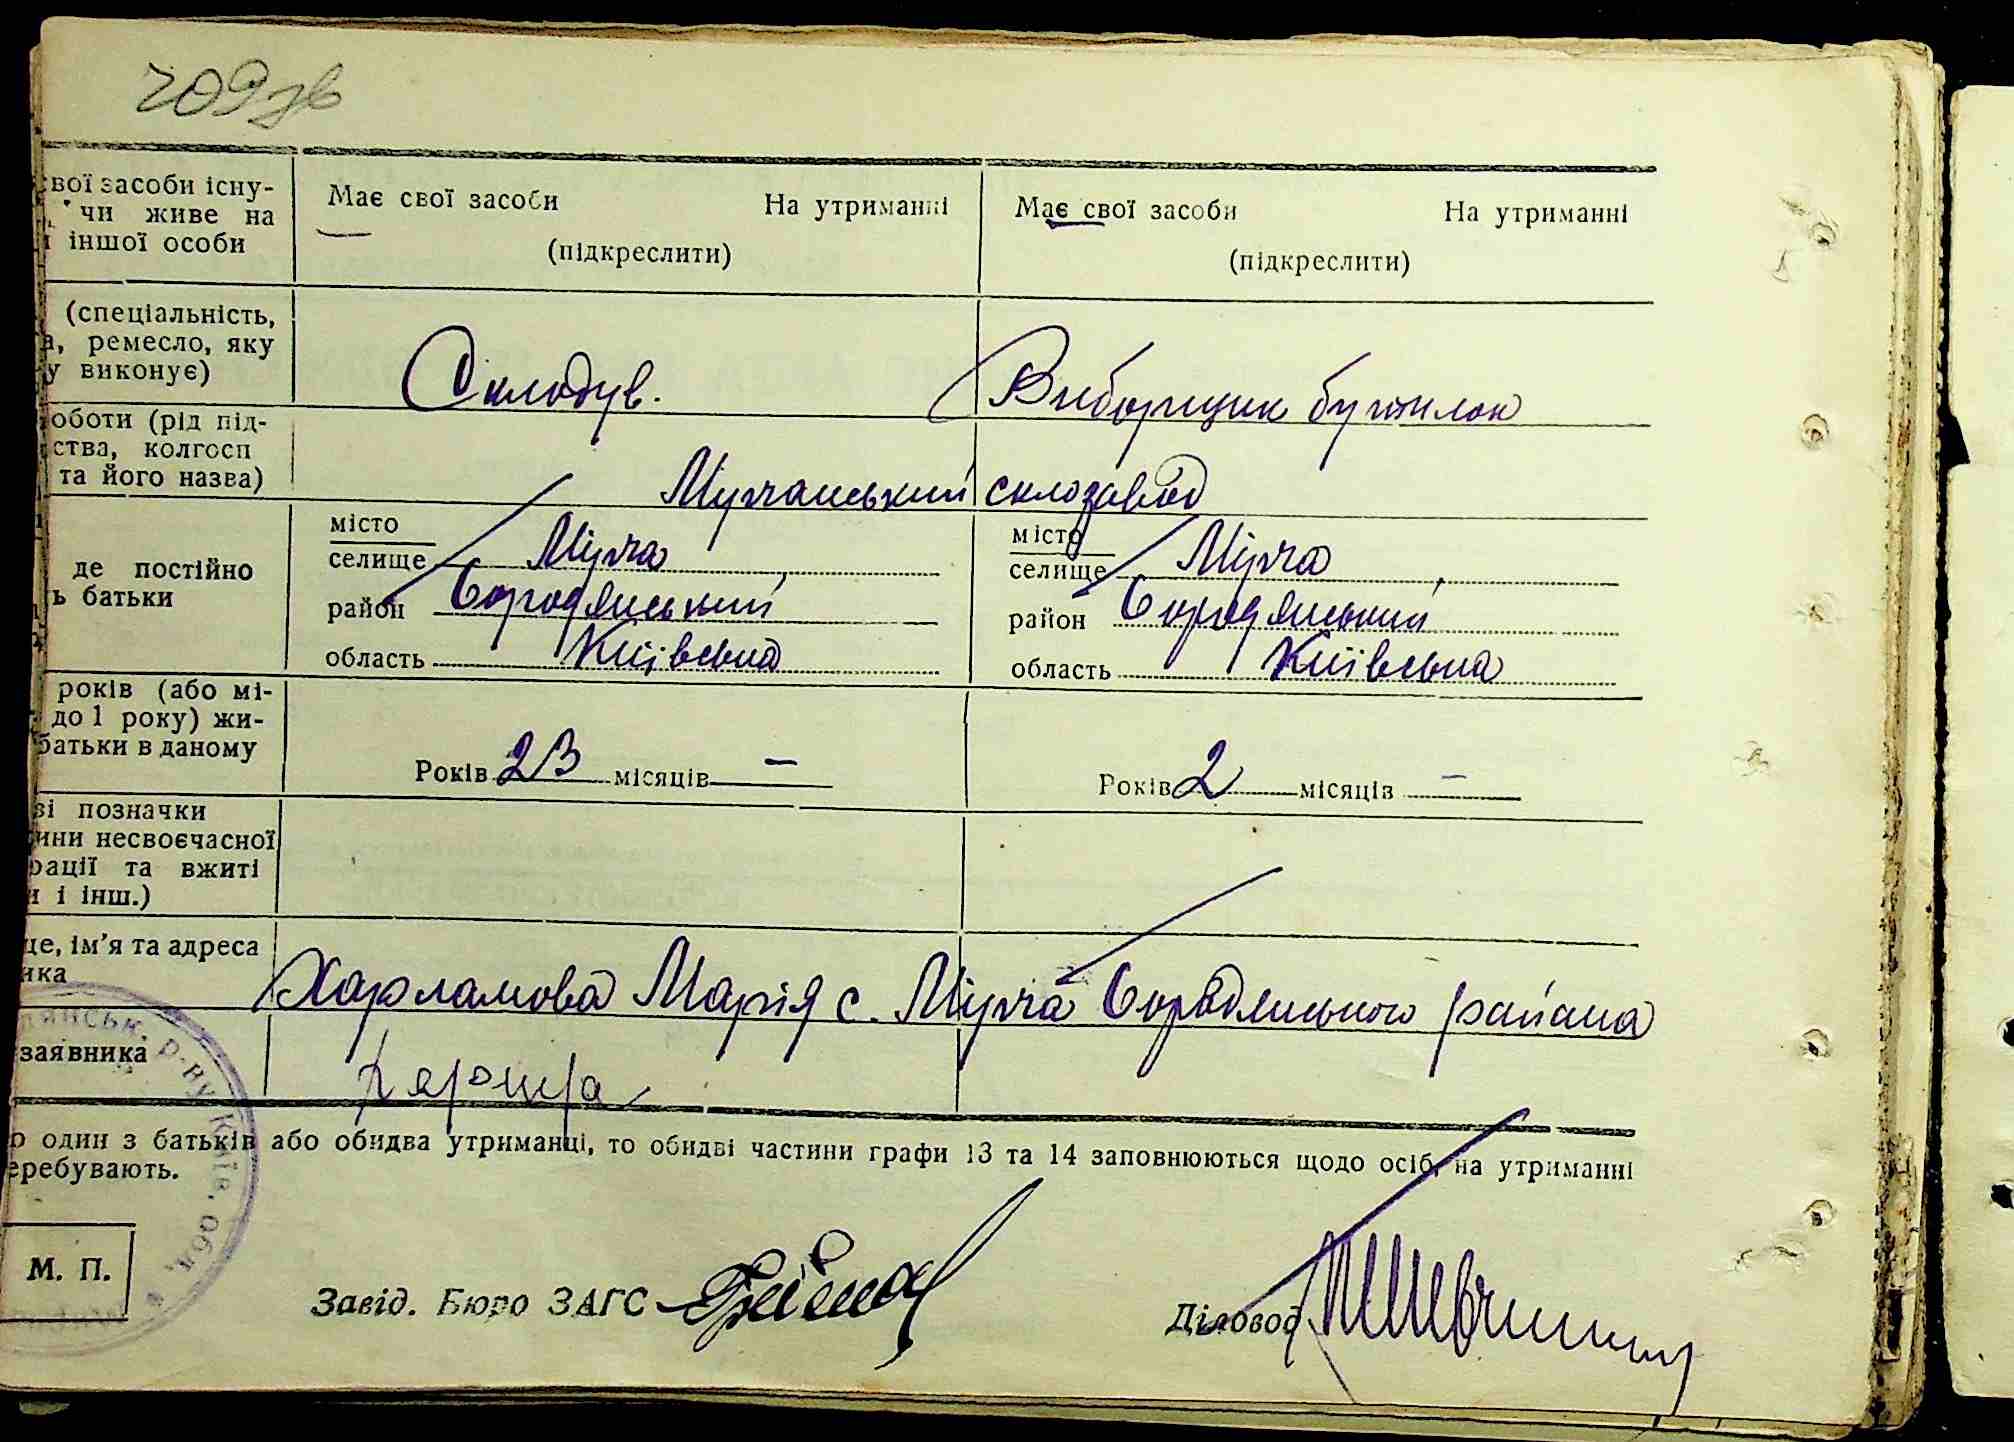 209зв
вої засоби існу-
чи живе на
іншої особи
Має свої засоби На утриманні
(підкреслити)
Має свої засоби На утриманні
(підкреслити)
(спеціальність,
ремесло, яку
у виконує)
Склодув.
Виборщик бутилок
оботи (рід під-
ства, колгосп
та його назва)
Мирчанський склозавод
де постійно
ь батьки
місто
селище Мірча
район Бородянський
область Київська
місто
селище Мірча
район Бородянський
область Київська
років (або мі-
до 1 року) жи-
батьки в даному
Років 23 місяців —
Років 2 місяців —
ві позначки
ини несвоєчасної
рації та вжиті
и і інш.)
це, ім'я та адреса
ика
Харламова Марія с. Мірча Бородянського района
заявника
о один з батьків або обидва утриманці, то обидві частини графи 13 та 14 заповнюються щодо осіб, на утриманні
еребувають.
янськ. р-ну Київ. обл.
М. П.
Завід. Бюро ЗАГС
Діловод